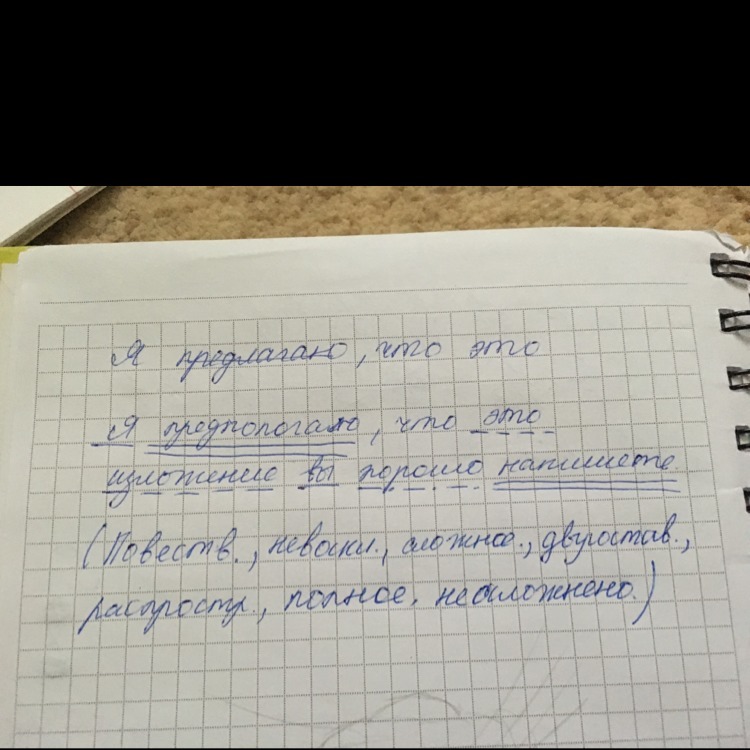 Я предлагаю, что это
Я предпологаю, что это
изложение вы хорошо напишете.
(Повеств., невоскл., сложное., двусостав.,
распростр., полное, неосложнено.)